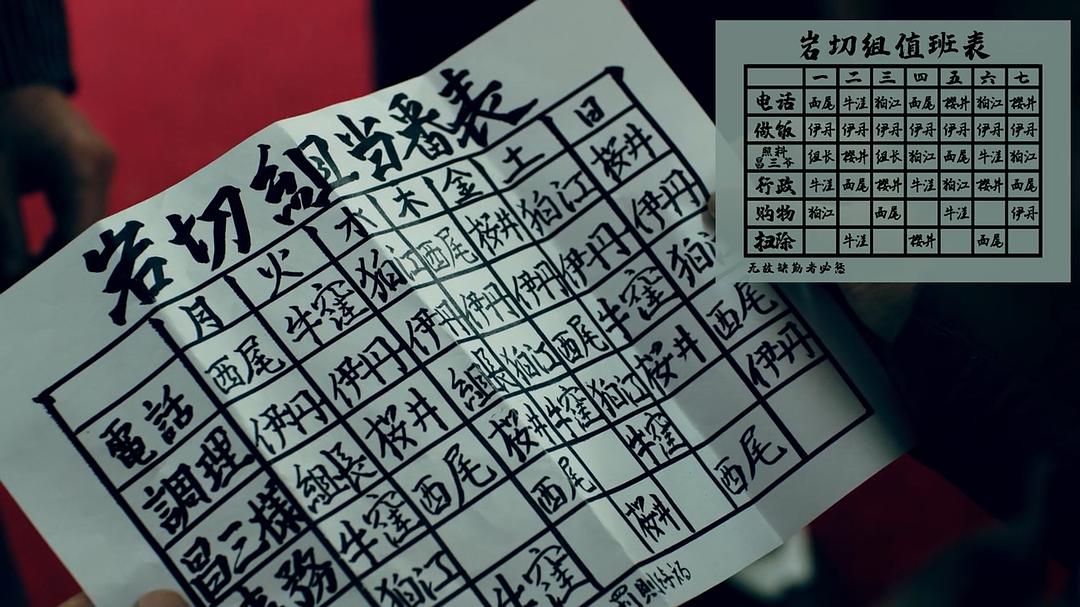 岩切組当番表
月 火 水 木 金 土 日
電話 西尾 牛窪 狛江 西尾 桜井 狛江 桜井
調理 伊丹 伊丹 伊丹 伊丹 伊丹 伊丹 伊丹
昌三様 組長 桜井 組長 狛江 西尾 牛窪 狛江
務 牛窪 西尾 桜井 牛窪 狛江 桜井 西尾
狛江 西尾 牛窪 伊丹
牛窪 桜井 西尾
岩切组值班表
一 二 三 四 五 六 七
电话 西尾 牛洼 狛江 西尾 樱井 狛江 樱井
做饭 伊丹 伊丹 伊丹 伊丹 伊丹 伊丹 伊丹
照料
昌三爷 组长 樱井 组长 狛江 西尾 牛洼 狛江
行政 牛洼 西尾 樱井 牛洼 狛江 樱井 西尾
购物 狛江 西尾 牛洼 伊丹
扫除 牛洼 樱井 西尾
无故缺勤者必惩